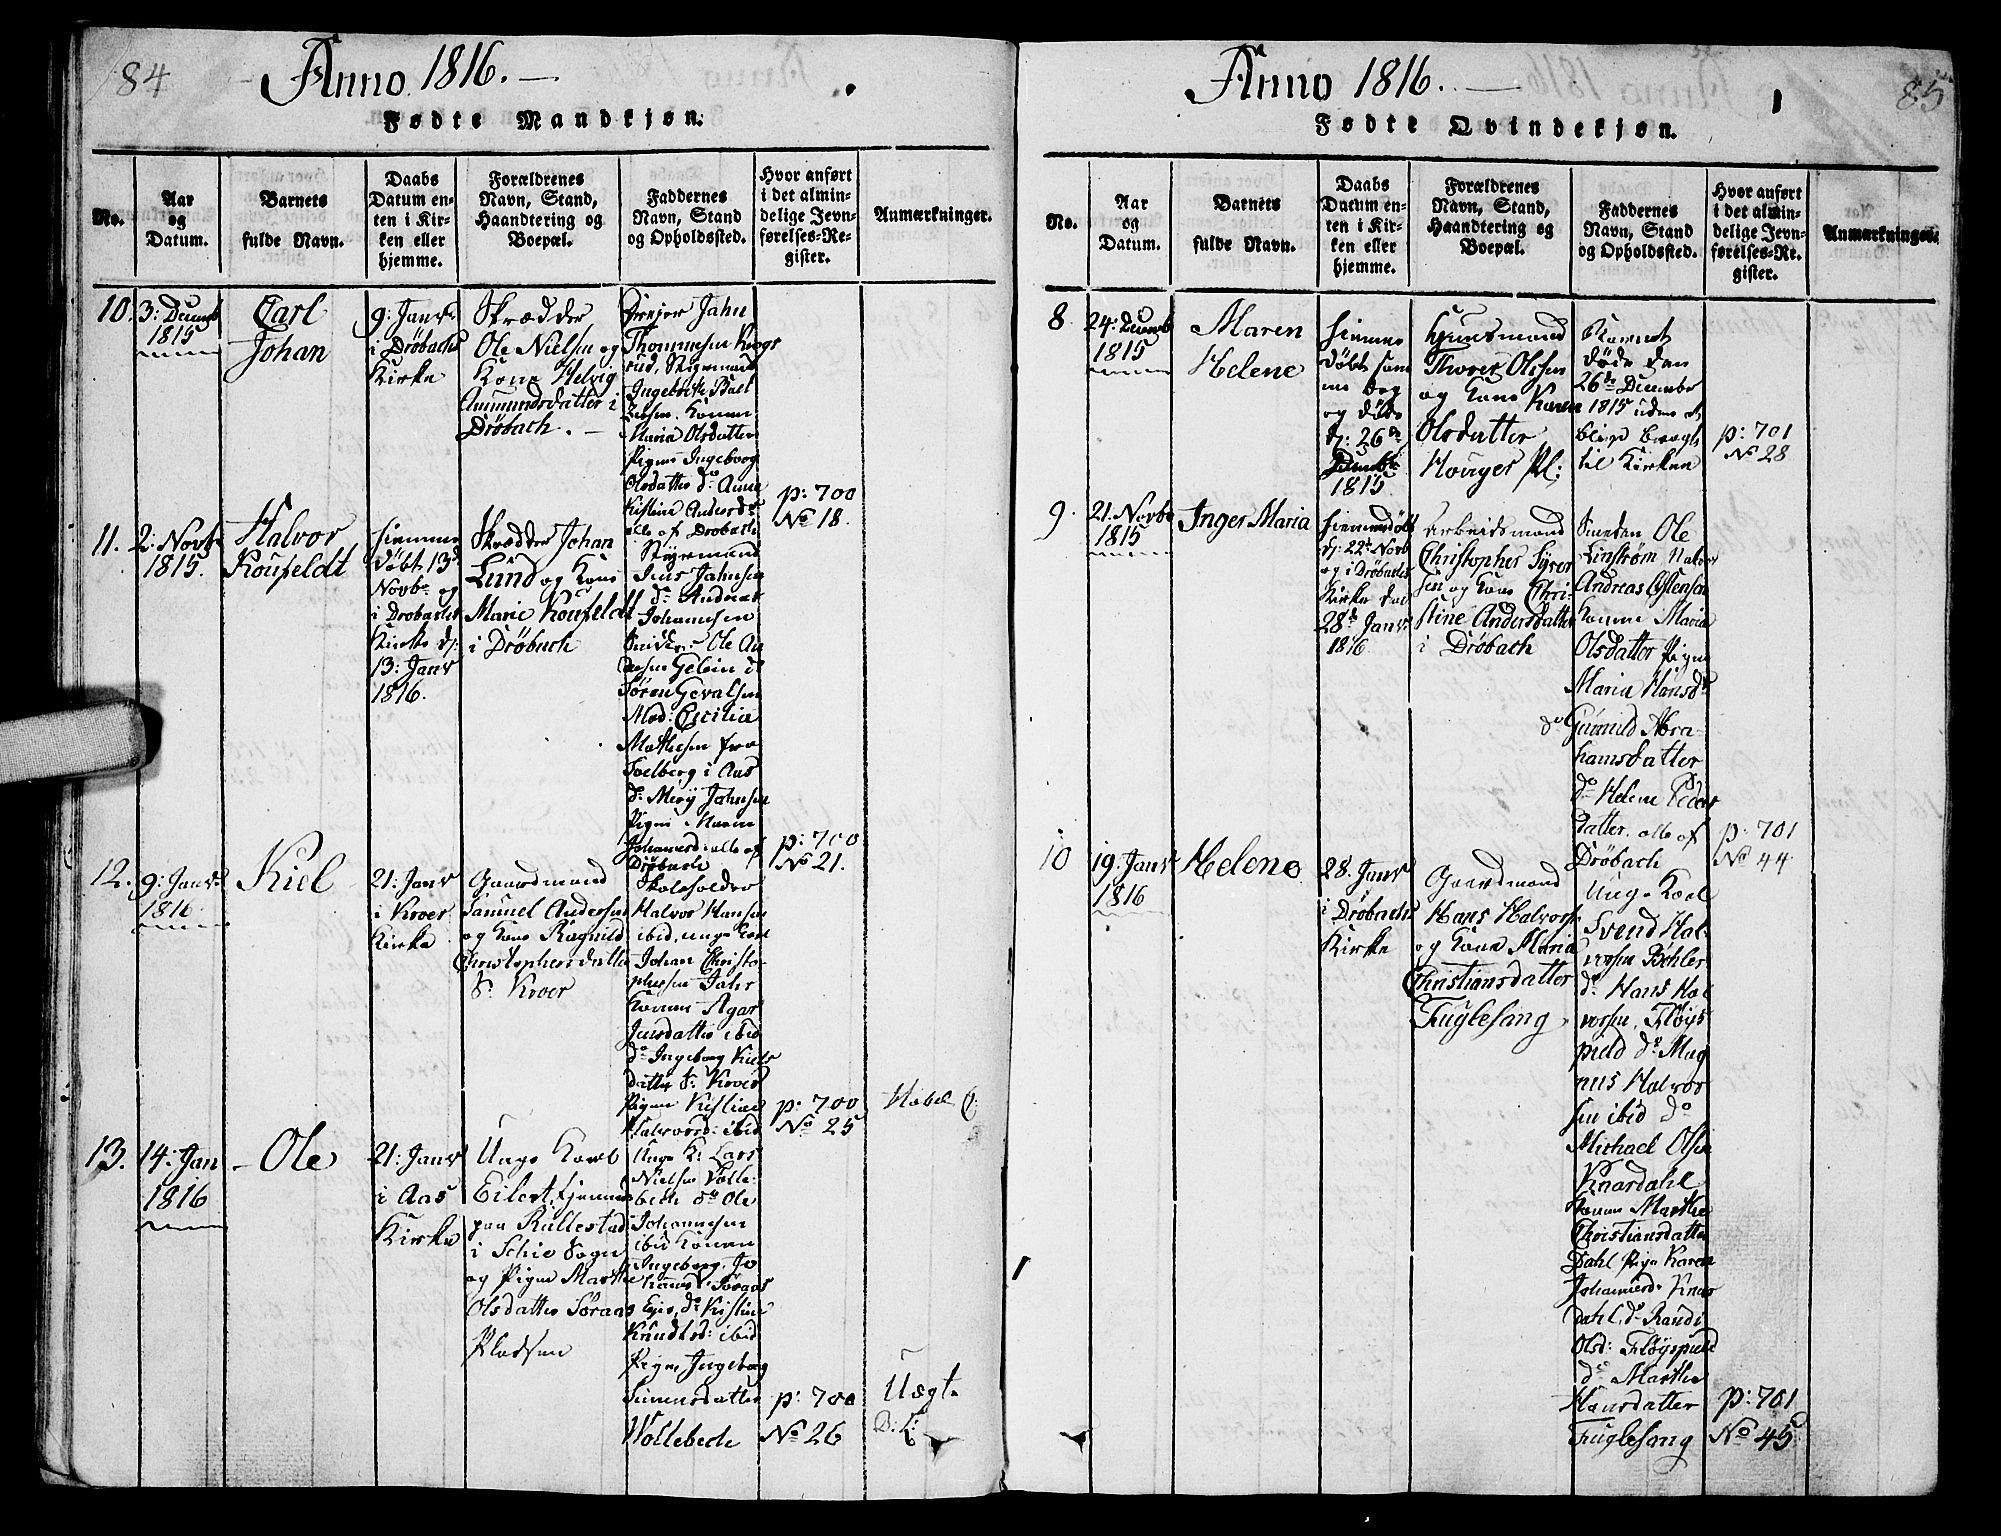 84
Anno 1816.
Fødte Mandkjøn.
No.
Aar
og
Datum.
Barnets
fulde Navn.
Daabs
Datum en-
ten i Kir-
ken eller
hjemme.
Forældrenes
Navn, Stand,
Haandtering og
Boepæl.
Faddernes
Navn, Stand
og Opholdssted.
Hvor anført
i det almin-
delige Jevn-
førelses-Re-
gister.
Anmærkninger.
10.
3: Decemb
1815
Carl
Johan
9: Janr
i Drøbachs
Kirke
Skrædder
Ole Nielsen og
Kone Helvig
Amundsdatter i
Drøbach.
Jahn
Thommesen Krogs
rud, Styrmand
Ingebrikt
Konen
Maria Olsdatter
Pigen Ingeborg
Olsdatter do Anne
Kistine Andersd
alle af Drøbach
p: 700
No 18.
11.
2: Novb
1815.
Halvor
Koufeldt
Hiemme
døbt 13d
Novb og
i Drøbachs
Kirke d:
13: Janr
1816.
Skrædder Johan
Lund og Kone
Marie Koufeldt
i Drøbach
Styrmand
Jens Jahnsen
do Andreas
Johannesen
Ole An
dersen
Søren Gevalsen
Mad: Cecilia
Mathesen fra
Soelberg i Aas
do Merij Johnsen
Pigen Maren
Johannesd: alle af
Drøbach
p: 700
No 21.
12.
9: Janr
1816
Kiel
21: Janr
i Kroer
Kirke
Gaardmand
Samuel Andersen
og Kone Ragnild
Christophersdatter
S: Kroer
Skoleholder
Halvor Hansen
ibid, unge Karl
Johan Christo-
phersen Jahr
Konen Agar
Jensdatter ibid
do Ingeborg Kiels
datter S: Kroer
Pigen Kistine
Halvorsd: ibid
p: 700
No 25
13.
14: Jan
1816
Ole
21: Janr
i Aas
Kirke
Unge Karl
Eilert, tjenende
paa Rullestad
i Schie Sogn
og Pigen Marthe
Olsdatter Søraas
Pladsen
Unge K: Lars
Nielsen Volle-
bech do Ole
Johannesen
ibid Konen
Ingeborg Jo
hannesd: Søraas
Eje, do Kistine
Knudsd: ibid
Pigen Ingeborg
Simensdatter
Wollebech
p: 700
No 26
Uægt
85
Anno 1816.
Fødte Qvindekjøn.
No.
Aar
og
Datum.
Barnets
fulde Navn.
Daabs
Datum en-
ten i Kir-
ken eller
hjemme.
Forældrenes
Navn, Stand,
Haandtering og
Boepæl.
Faddernes
Navn, Stand
og Opholdssted.
Hvor anført
i det almin-
delige Jevn-
førelses-Re-
gister.
Anmærkninger.
8
24: Decemb
1815
Maren
Helene
Hiemme
døbt sam
me dag
og døde
d: 26de
Decembr
1815
Huusmand
Thorer Olssen
og Kone Karen
Olsdatter
Houger Pl:
Barnet
døde den
26de Decembr
1815 uden at
blive bragt
til Kirken
p: 701
No 28
9.
21. Novbr
1815
Inger Maria
Hiemmedøbt
d: 22de Novb
og i Drøbachs
Kirke den
28de Janr
1816
Arbeidsmand
Christopher Syver
sen og Kone Chri-
stine Andersdatter
i Drøbach
Smeden Ole
Linstrøm
Andreas Ostensen
Konen Maria
Olsdatter Pigen
Maria Hansd
do Gunnild Abra-
hamsdatter
do Helene Peders
datter. alle af
Drøbach
p: 701
No 44
10
19: Janr
1816
Helene
28. Janr
i Drøbachs
Kirke
Gaardmand
Hans Halvors
og Kone Maria
Christiansdatter
Fuglesang
Unge Karl
Svend Hal-
vorsen Bøhler
do Hans Hal
vorsen, Fløys
pield do Mag
nus Halvor
sen ibid do
Michael Olsen
Knardahl
Konen Marthe
Christiansdatter
Dahl Pige Karen
Johannesd: Knar
dahl, do Randi
Olsd: Fløyspield
do Marthe
Hansdatter
Fuglesang
p: 701
No 45